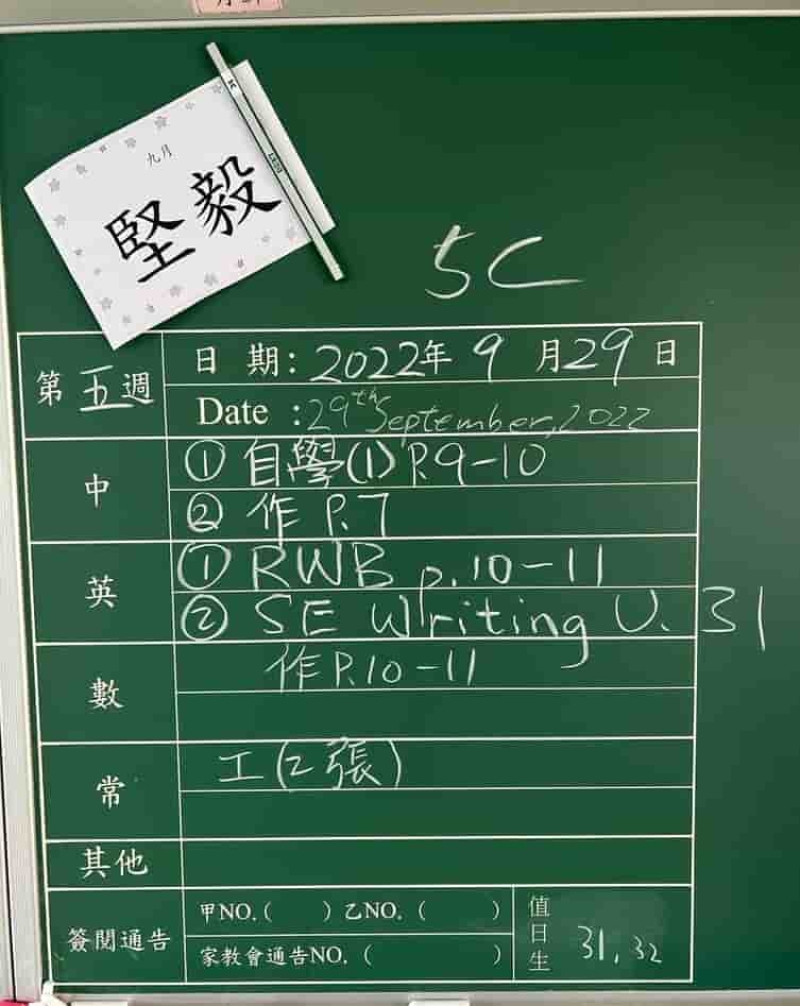 九月
堅毅
5C
第五週
日 期: 2022年 9 月29日
Date :29th September, 2022
中
① 自學(1) P.9-10
② 作 P.7
英
① RWB p.10-11
② SE Writing U.31
數
作P.10-11
常
工(2張)
其他
簽閱通告
甲NO.( ) 乙NO.( )
家教會通告NO.( )
值日生
31, 32